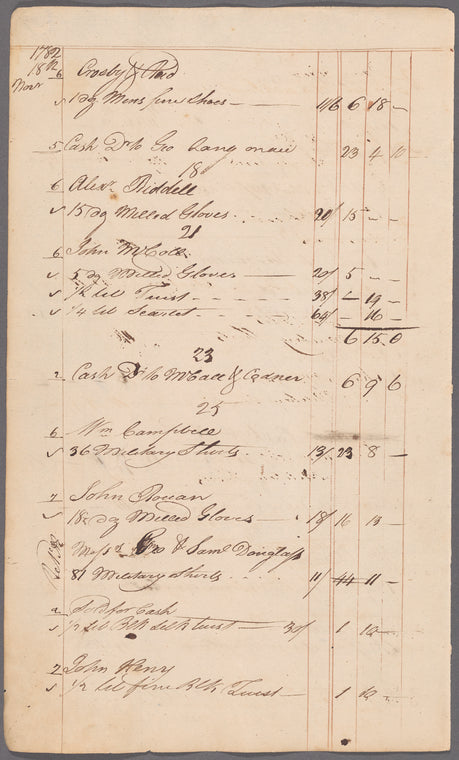 1782
18th
Novr
6 Crosby &
5 1 dz Mens fine Shoes — 116 6 18 —
5 Cash Dr to Geo Langmaie 23 4 10
18
6 Alexr Biddell
5 15 dz Milled Gloves 20/ 15 — —
21
6 John McCole
5 5 dz Milled Gloves — 20/ 5 — —
5 1/2 lb Twist 38/ — 19 —
5 1/4 lb Scarlet 64/ — 16 —
6 15 0
23
2 Cash Dr to McCall & Cadner 6 9 6
25
6 Wm Campbell
5 36 Military Shirts 13/ 23 8 —
7 John Rowan
5 18 dz Milled Gloves — 18/ 16 13 —
Messrs Geo & Saml Douglass
81 Military Shirts 11/ 44 11 —
2 Sold for Cash
5 1/2 lb Blk Silk twist — 30/ 1 10 —
7 John Keny
5 1/2 lb fine Blk Twist — 1 10 —